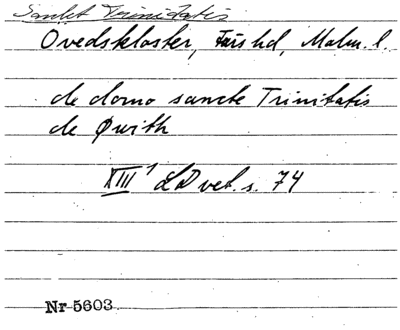 Sankt Trinitatis
Ovedskloster, Färs hd, Malm. l.
de domo sancte Trinitatis
de Øwith
XIII¹ LD vet. s. 74
Nr 5603